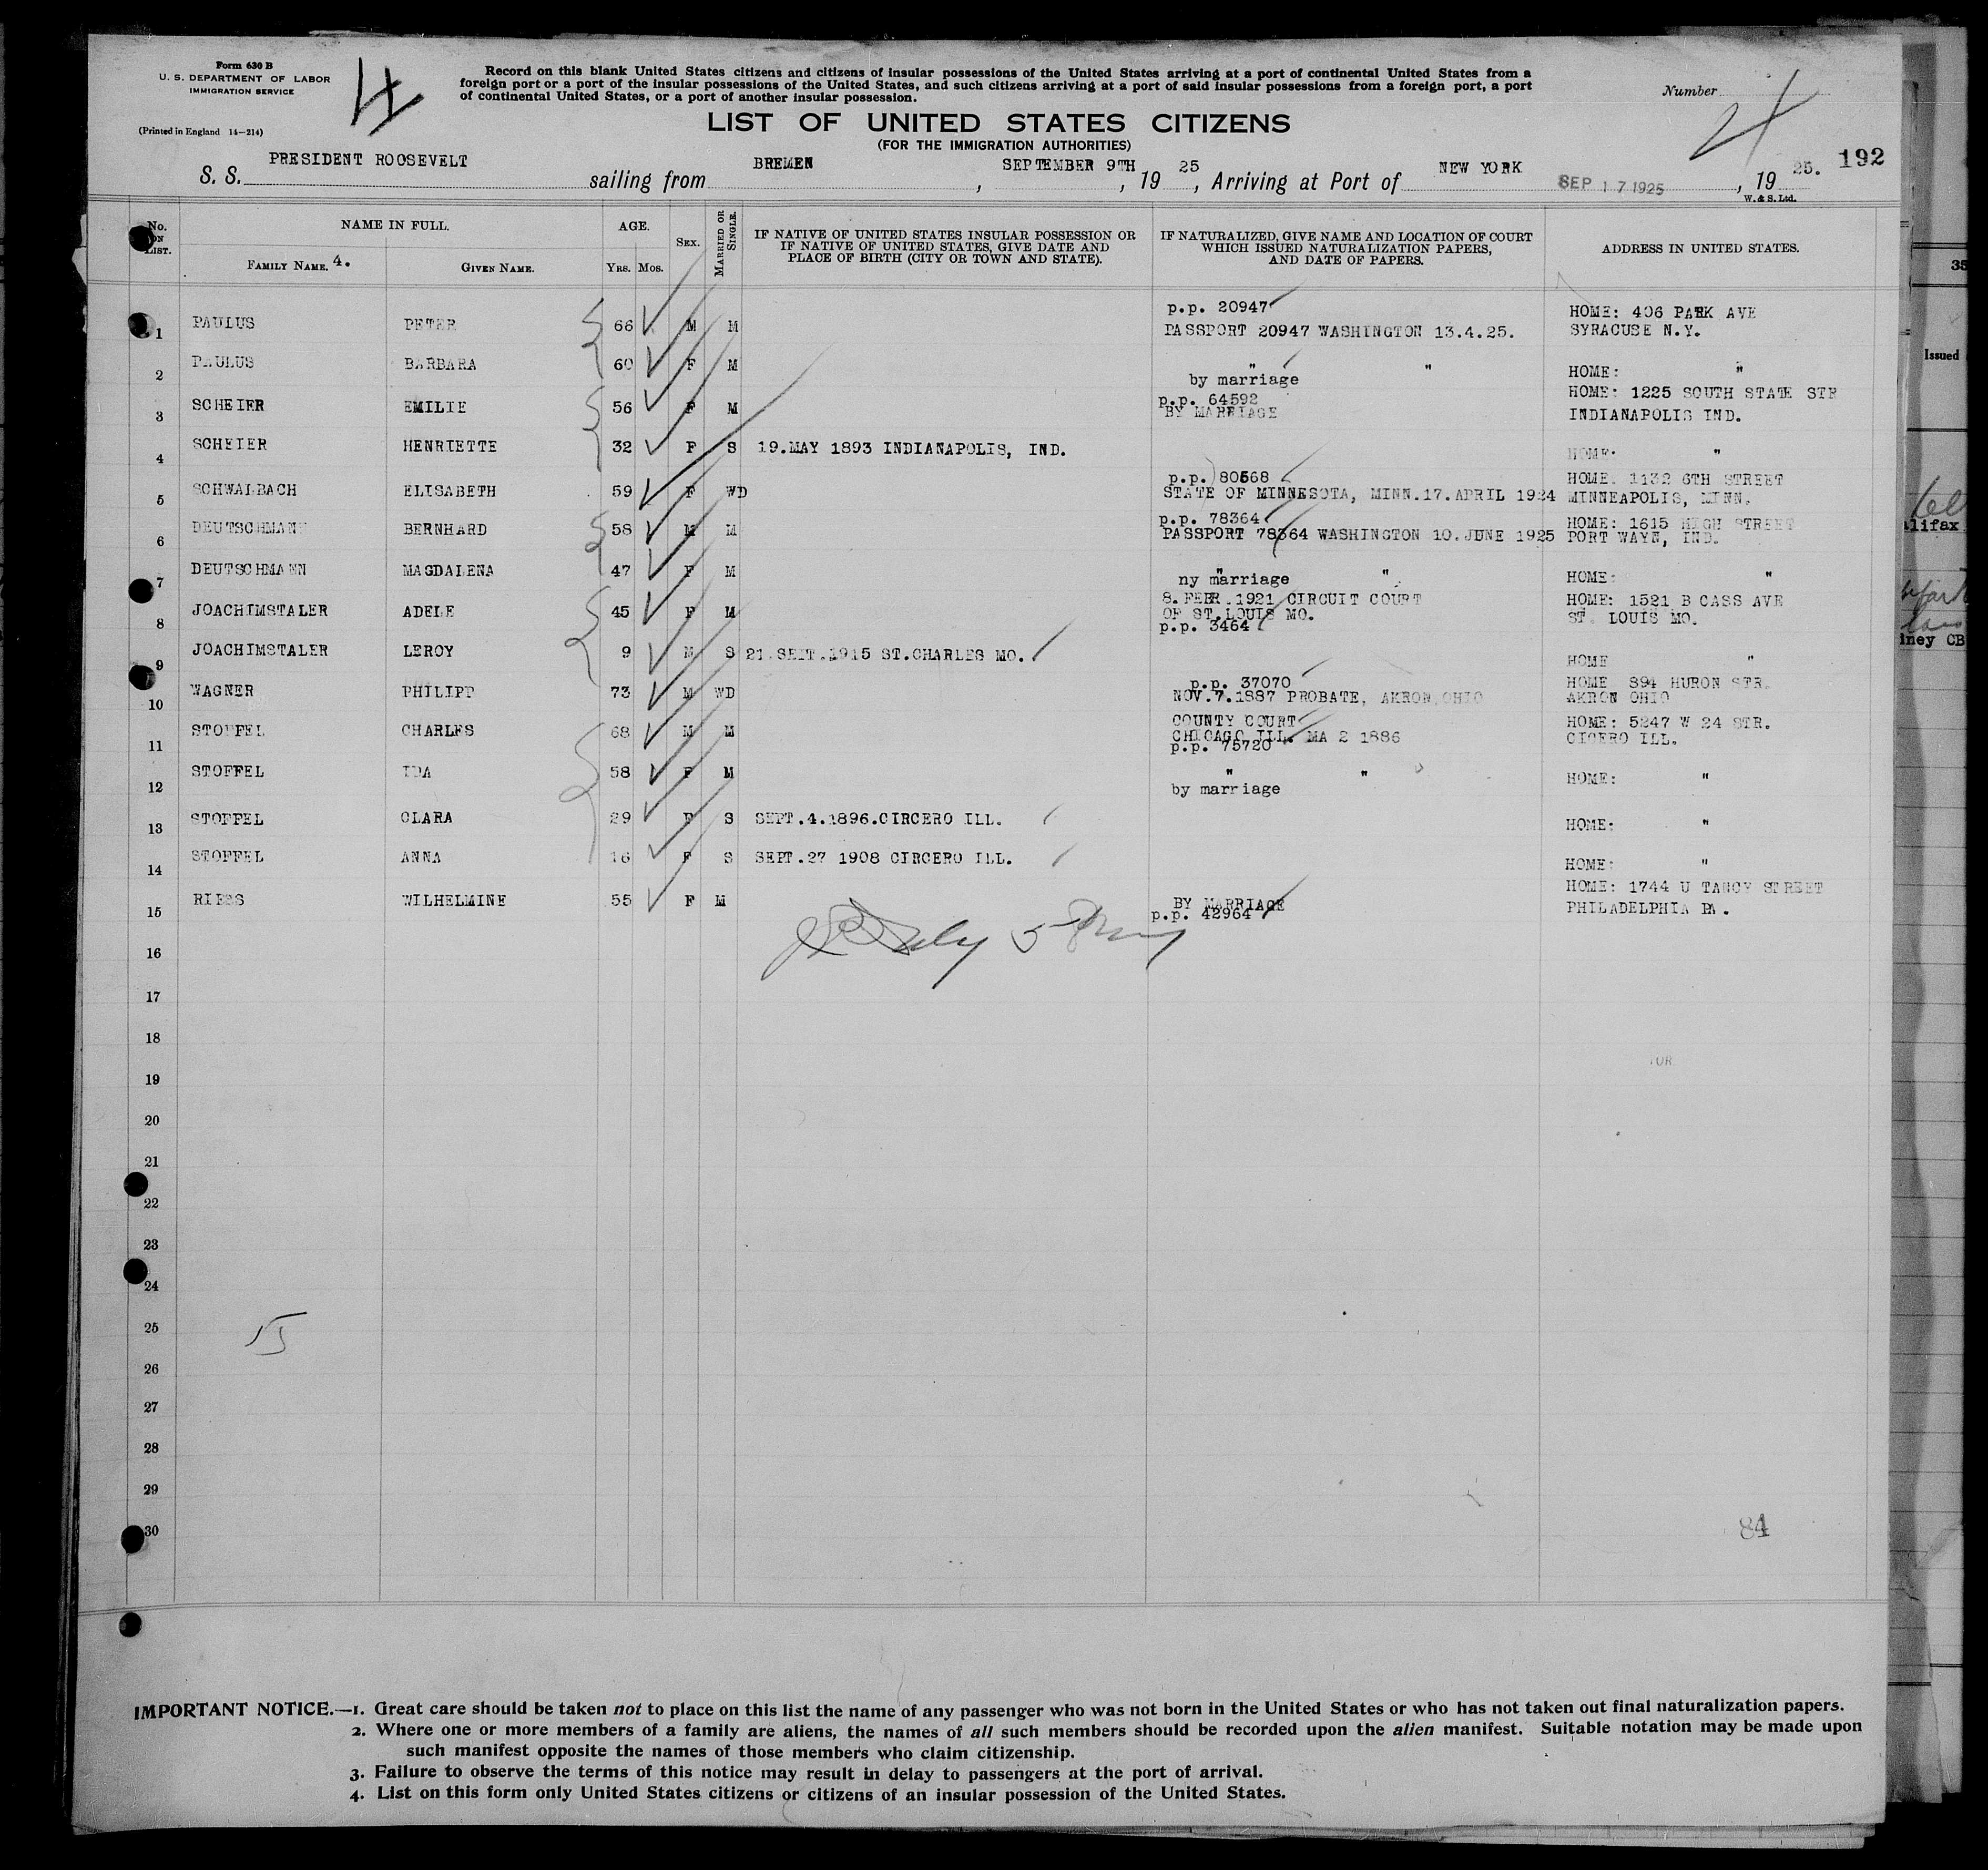 Form 630 B
U. S. DEPARTMENT OF LABOR
IMMIGRATION SERVICE
(Printed in England 14-214)
4
Record on this blank United States citizens and citizens of insular possessions of the United States arriving at a port of continental United States from a
foreign port or a port of the insular possessions of the United States, and such citizens arriving at a port of said insular possessions from a foreign port, a port
of continental United States, or a port of another insular possession.
Number
LIST OF UNITED STATES CITIZENS
(FOR THE IMMIGRATION AUTHORITIES)
192
S. S. PRESIDENT ROOSEVELT sailing from BREMEN, SEPTEMBER 9TH, 19 25, Arriving at Port of NEW YORK SEP 17 1925, 19 25.
W. & S. Ltd.
No. ON LIST. NAME IN FULL. AGE. SEX. MARRIED OR SINGLE. IF NATIVE OF UNITED STATES INSULAR POSSESSION OR IF NATIVE OF UNITED STATES, GIVE DATE AND PLACE OF BIRTH (CITY OR TOWN AND STATE). IF NATURALIZED, GIVE NAME AND LOCATION OF COURT WHICH ISSUED NATURALIZATION PAPERS, AND DATE OF PAPERS. ADDRESS IN UNITED STATES.
FAMILY NAME. 4. GIVEN NAME. YRS. MOS.
p.p. 20947 HOME: 406 PARK AVE
1 PAULUS PETER 66 M M PASSPORT 20947 WASHINGTON 13.4.25. SYRACUSE N.Y.
2 PAULUS BARBARA 60 F M " " HOME: "
by marriage
3 SCHEIER EMILIE 56 F M p.p. 64592 HOME: 1225 SOUTH STATE STR
BY MARRIAGE INDIANAPOLIS IND.
4 SCHEIER HENRIETTE 32 F S 19.MAY 1893 INDIANAPOLIS, IND. HOME: "
p.p. 80568 HOME. 1132 6TH STREET
5 SCHWALBACH ELISABETH 59 F WD STATE OF MINNESOTA, MINN.17.APRIL 1924 MINNEAPOLIS, MINN.
p.p. 78364 HOME: 1615 HIGH STREET
6 DEUTSCHMANN BERNHARD 58 M M PASSPORT 78364 WASHINGTON 10.JUNE 1925 PORT WAYN, IND.
7 DEUTSCHMANN MAGDALENA 47 F M ny marriage " " HOME: "
8 JOACHIMSTALER ADELE 45 F M 8.FEBR.1921 CIRCUIT COURT HOME: 1521 B CASS AVE
OF ST.LOUIS MO. ST. LOUIS MO.
p.p. 3464
9 JOACHIMSTALER LEROY 9 M S 21.SEPT.1915 ST.CHARLES MO. HOME "
p.p. 37070 HOME 894 HURON STR.
10 WAGNER PHILIPP 73 M WD NOV.7.1887 PROBATE, AKRON,OHIO AKRON OHIO
COUNTY COURT HOME: 5247 W 24 STR.
11 STOFFEL CHARLES 68 M M CHICAGO ILL. MA 2 1886 CICERO ILL.
p.p. 75720
12 STOFFEL IDA 58 F M " " HOME: "
by marriage
13 STOFFEL CLARA 29 F S SEPT.4.1896.CIRCERO ILL. HOME: "
14 STOFFEL ANNA 16 F S SEPT.27 1908 CIRCERO ILL. HOME: "
15 RIESS WILHELMINE 55 F M BY MARRIAGE PHILADELPHIA PA.
p.p. 42964
16
17
18
19
20
21
22
23
24
25
26
27
28
29
30
15
84
IMPORTANT NOTICE.—1. Great care should be taken not to place on this list the name of any passenger who was not born in the United States or who has not taken out final naturalization papers.
2. Where one or more members of a family are aliens, the names of all such members should be recorded upon the alien manifest. Suitable notation may be made upon
such manifest opposite the names of those members who claim citizenship.
3. Failure to observe the terms of this notice may result in delay to passengers at the port of arrival.
4. List on this form only United States citizens or citizens of an insular possession of the United States.
35
Issued
alifax
iney CB